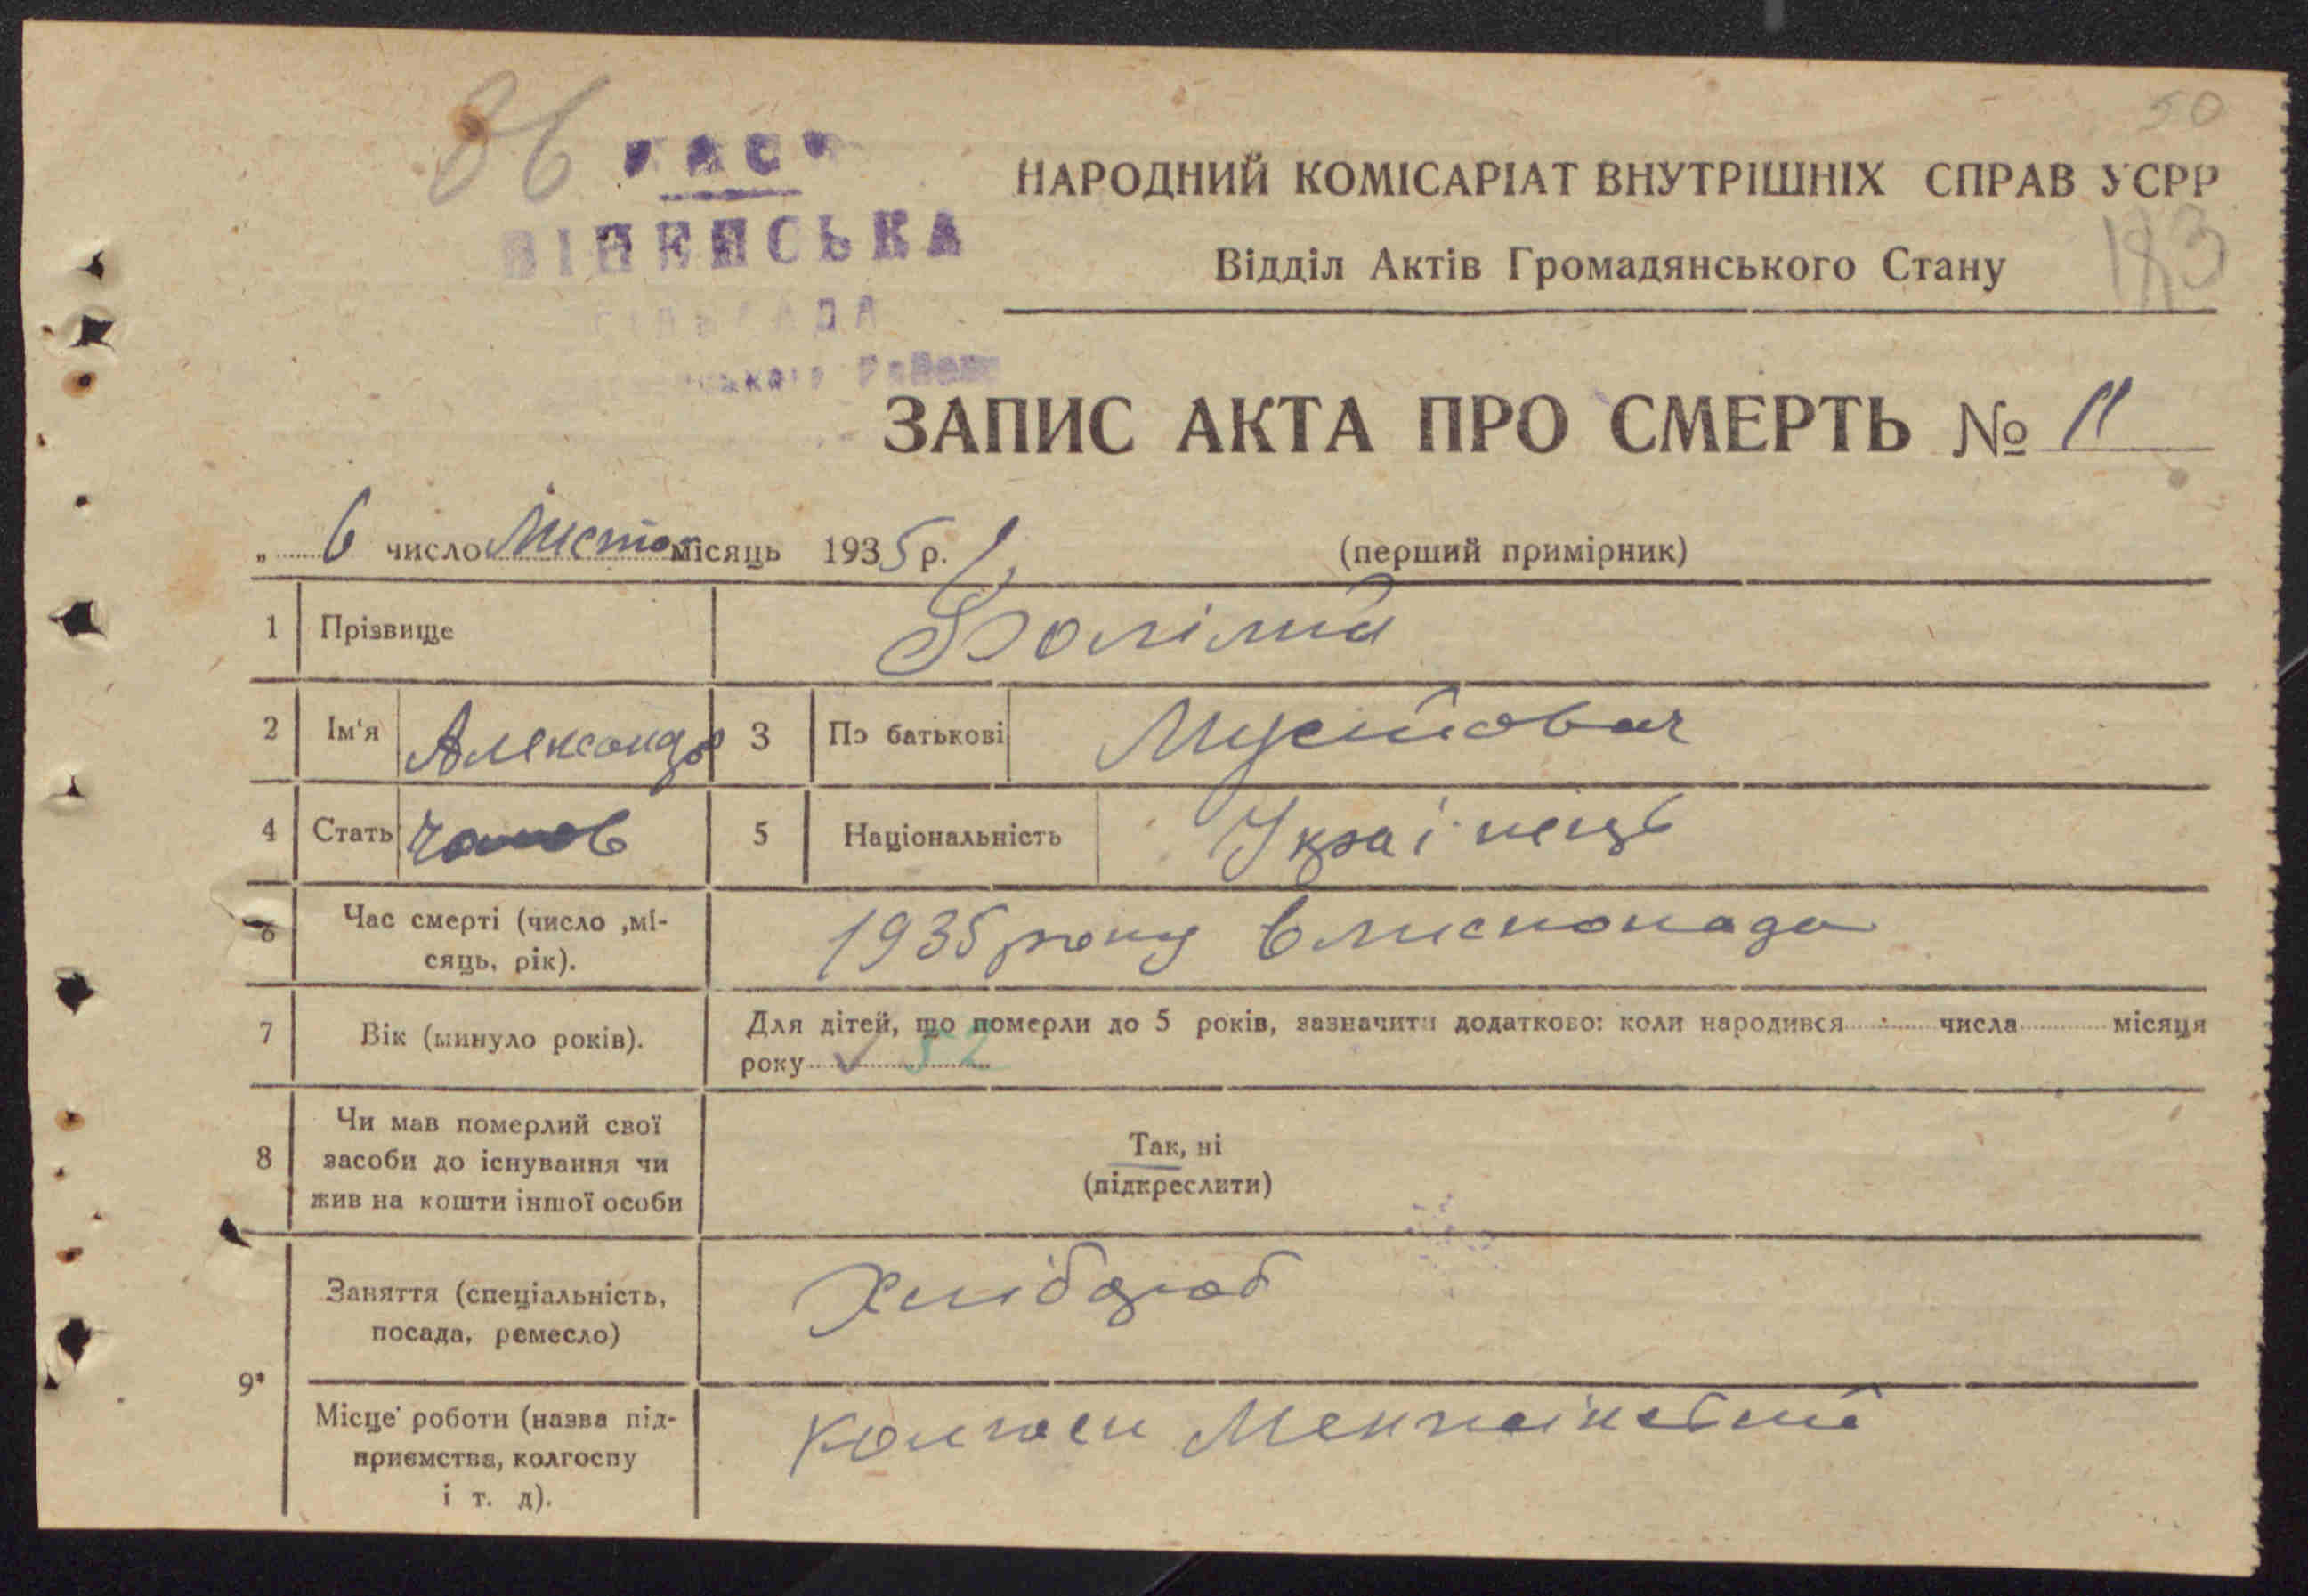 50
86
НАРОДНИЙ КОМІСАРІАТ ВНУТРІШНІХ СПРАВ УСРР
Відділ Актів Громадянського Стану
ЗАПИС АКТА ПРО СМЕРТЬ № 11
„ 6 число Листо місяць 1935 р.
(перший примірник)
1 Прізвище
2 Ім'я Александр 3 По батькові
4 Стать 5 Національність Украінець
6 Час смерті (число ,мі-
сяць, рік).
1935 року 6 листопада
7 Вік (минуло років).
Для дітей, що померли до 5 років, зазначити додатково: коли народився числа місяця
року 52
8 Чи мав померлий свої
засоби до існування чи
жив на кошти іншої особи
Так, ні
(підкреслити)
9*
Заняття (спеціальність,
посада, ремесло)
Хлібороб
Місце роботи (назва під-
приємства, колгоспу
і т. д).
колгосп